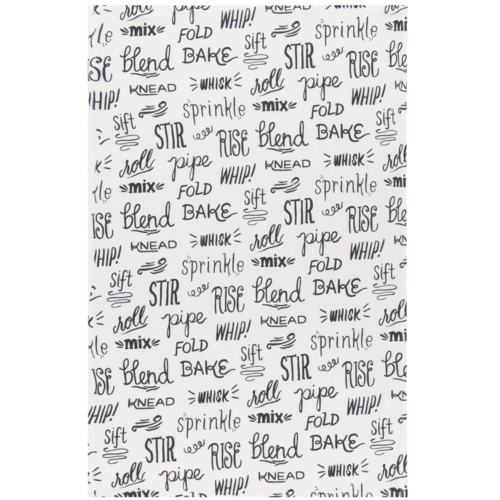 WHIP! sprinkle
mix FOLD sift STIR pipe RISE
blend BAKE
ISE KNEAD WHISK roll WHIP!
HIP! sprinkle mix FOLD
sift STIR RISE blend BAKE
roll pipe KNEAD WHISK
mix FOLD WHIP! sift sprinkle mi
RISE blend BAKE STIR pipe RISE
KNEAD WHISK roll WHIP!
WHIP! sprinkle mix FOLD
sift STIR RISE blend BAKE
roll pipe WHIP! KNEAD WHISK
mix FOLD sift sprinkle
ISE blend BAKE STIR RISE
KNEAD WHISK roll pipe WHIP!
HIP! sprinkle mix FOLD
sift STIR RISE blend BAKE
roll pipe WHIP! KNEAD WHISK